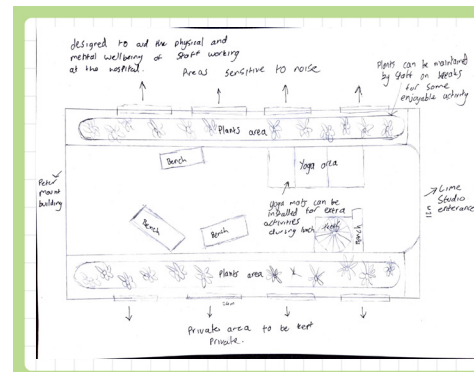 designed to aid the physical and
mental wellbeing of staff working
at the hospital.
Areas sensitive to noise
Plants can be maintained
by staff on breaks
for some
enjoyable activity
Plants area
Bench
Yoga area
Peter
mount
building
Yoga mats can be
installed for extra
activities
during
Bench
Bench
Bench
Lime
Studio
enterance
Plants area
Private area to be kept
private.